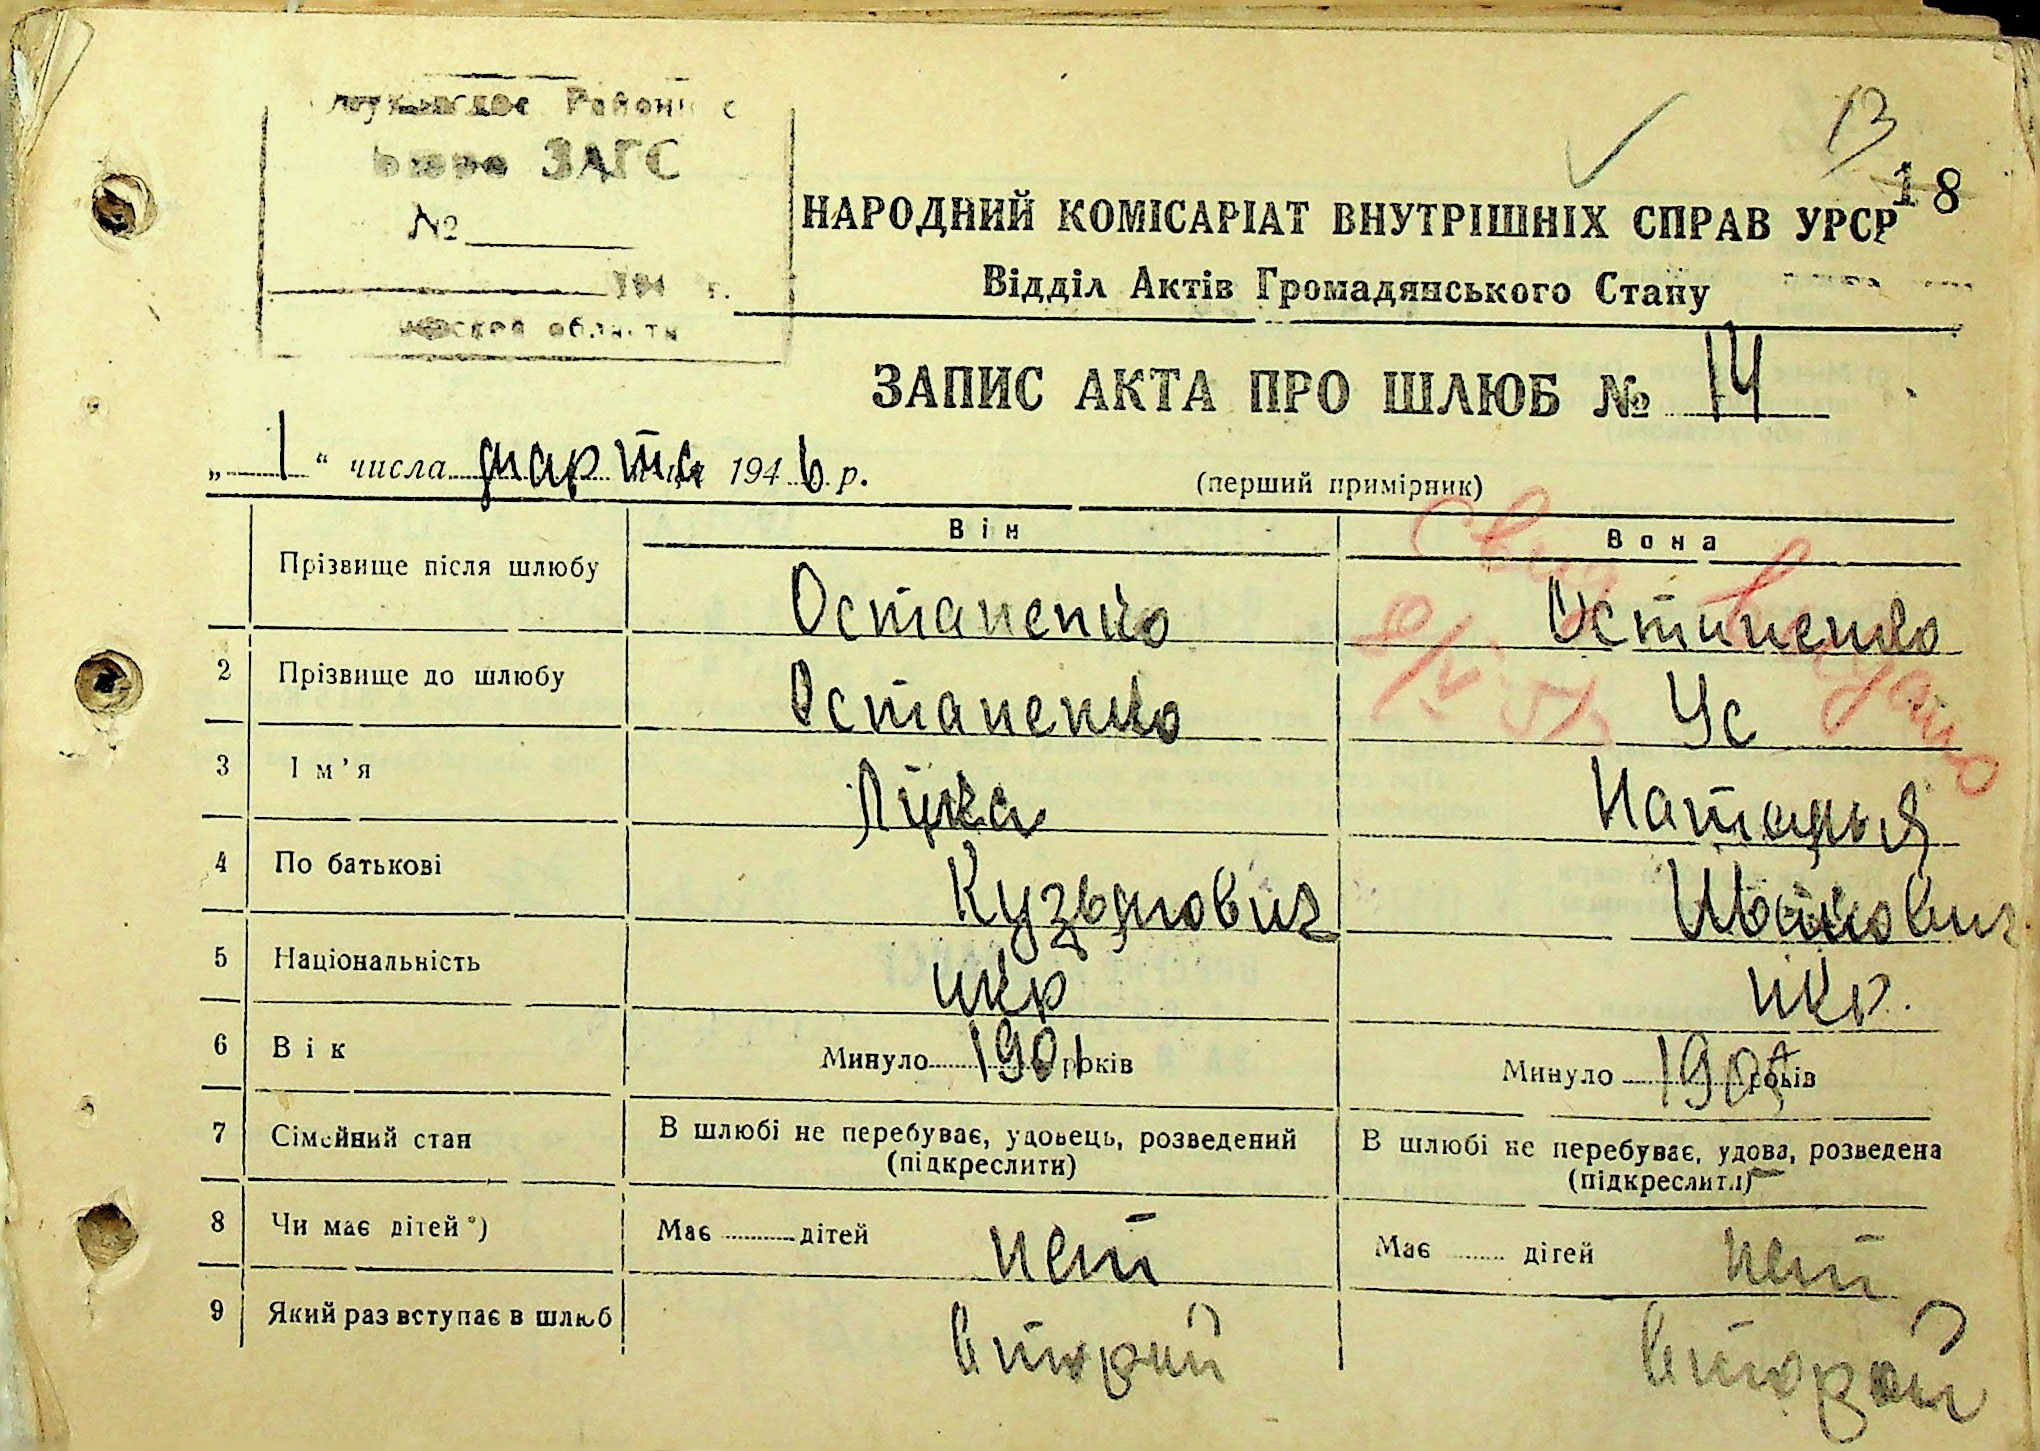 Районн с
бюро ЗАГС
№
194 г.
области
13
18
НАРОДНИЙ КОМІСАРІАТ ВНУТРІШНІХ СПРАВ УРСР
Відділ Актів Громадянського Стану
ЗАПИС АКТА ПРО ШЛЮБ № 14
„ 1 “ числа марта 1946 р.
(перший примірник)
Він Вона
Свид выдано
9/V 51
Прізвище після шлюбу Остапенко Остапенко
2 Прізвище до шлюбу Остапенко Ус
3 Ім'я Лука Наталья
4 По батькові Кузьмович Иванович
5 Національність укр укр.
6 Вік Минуло 1901 років Минуло років
7 Сімейний стан В шлюбі не перебуває, удовець, розведений (підкреслити) В шлюбі не перебуває, удова, розведена (підкреслити)
8 Чи має дітей*) Має дітей нет Має дітей нет
9 Який раз вступає в шлюб вторый второй